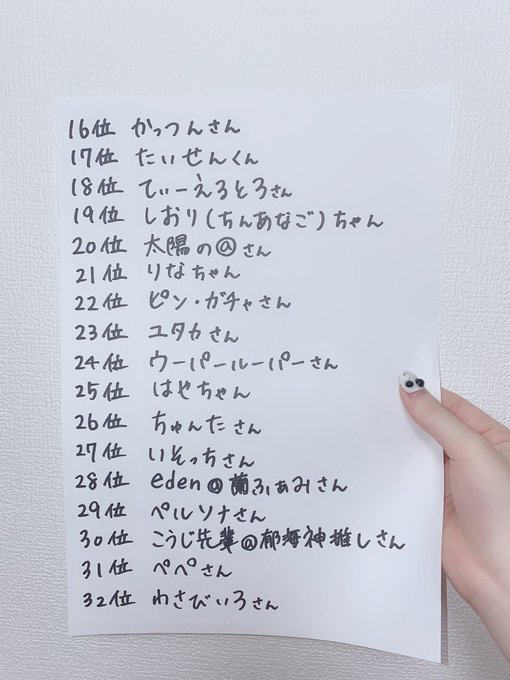 16位 かっつんさん
17位 たいせんくん
18位 てぃーえろとろさん
19位 しおり(ちんあなご)ちゃん
20位 太陽の@さん
21位 りなちゃん
22位 ピン・ガチャさん
23位 ユタカさん
24位 ウーパールーパーさん
25位 はやちゃん
26位 ちゅんたさん
27位 いそっちさん
28位 eden@蘭ふぁみさん
29位 ペルソナさん
30位 こうじ先輩@郁海神推しさん
31位 ペペさん
32位 わさびいろさん